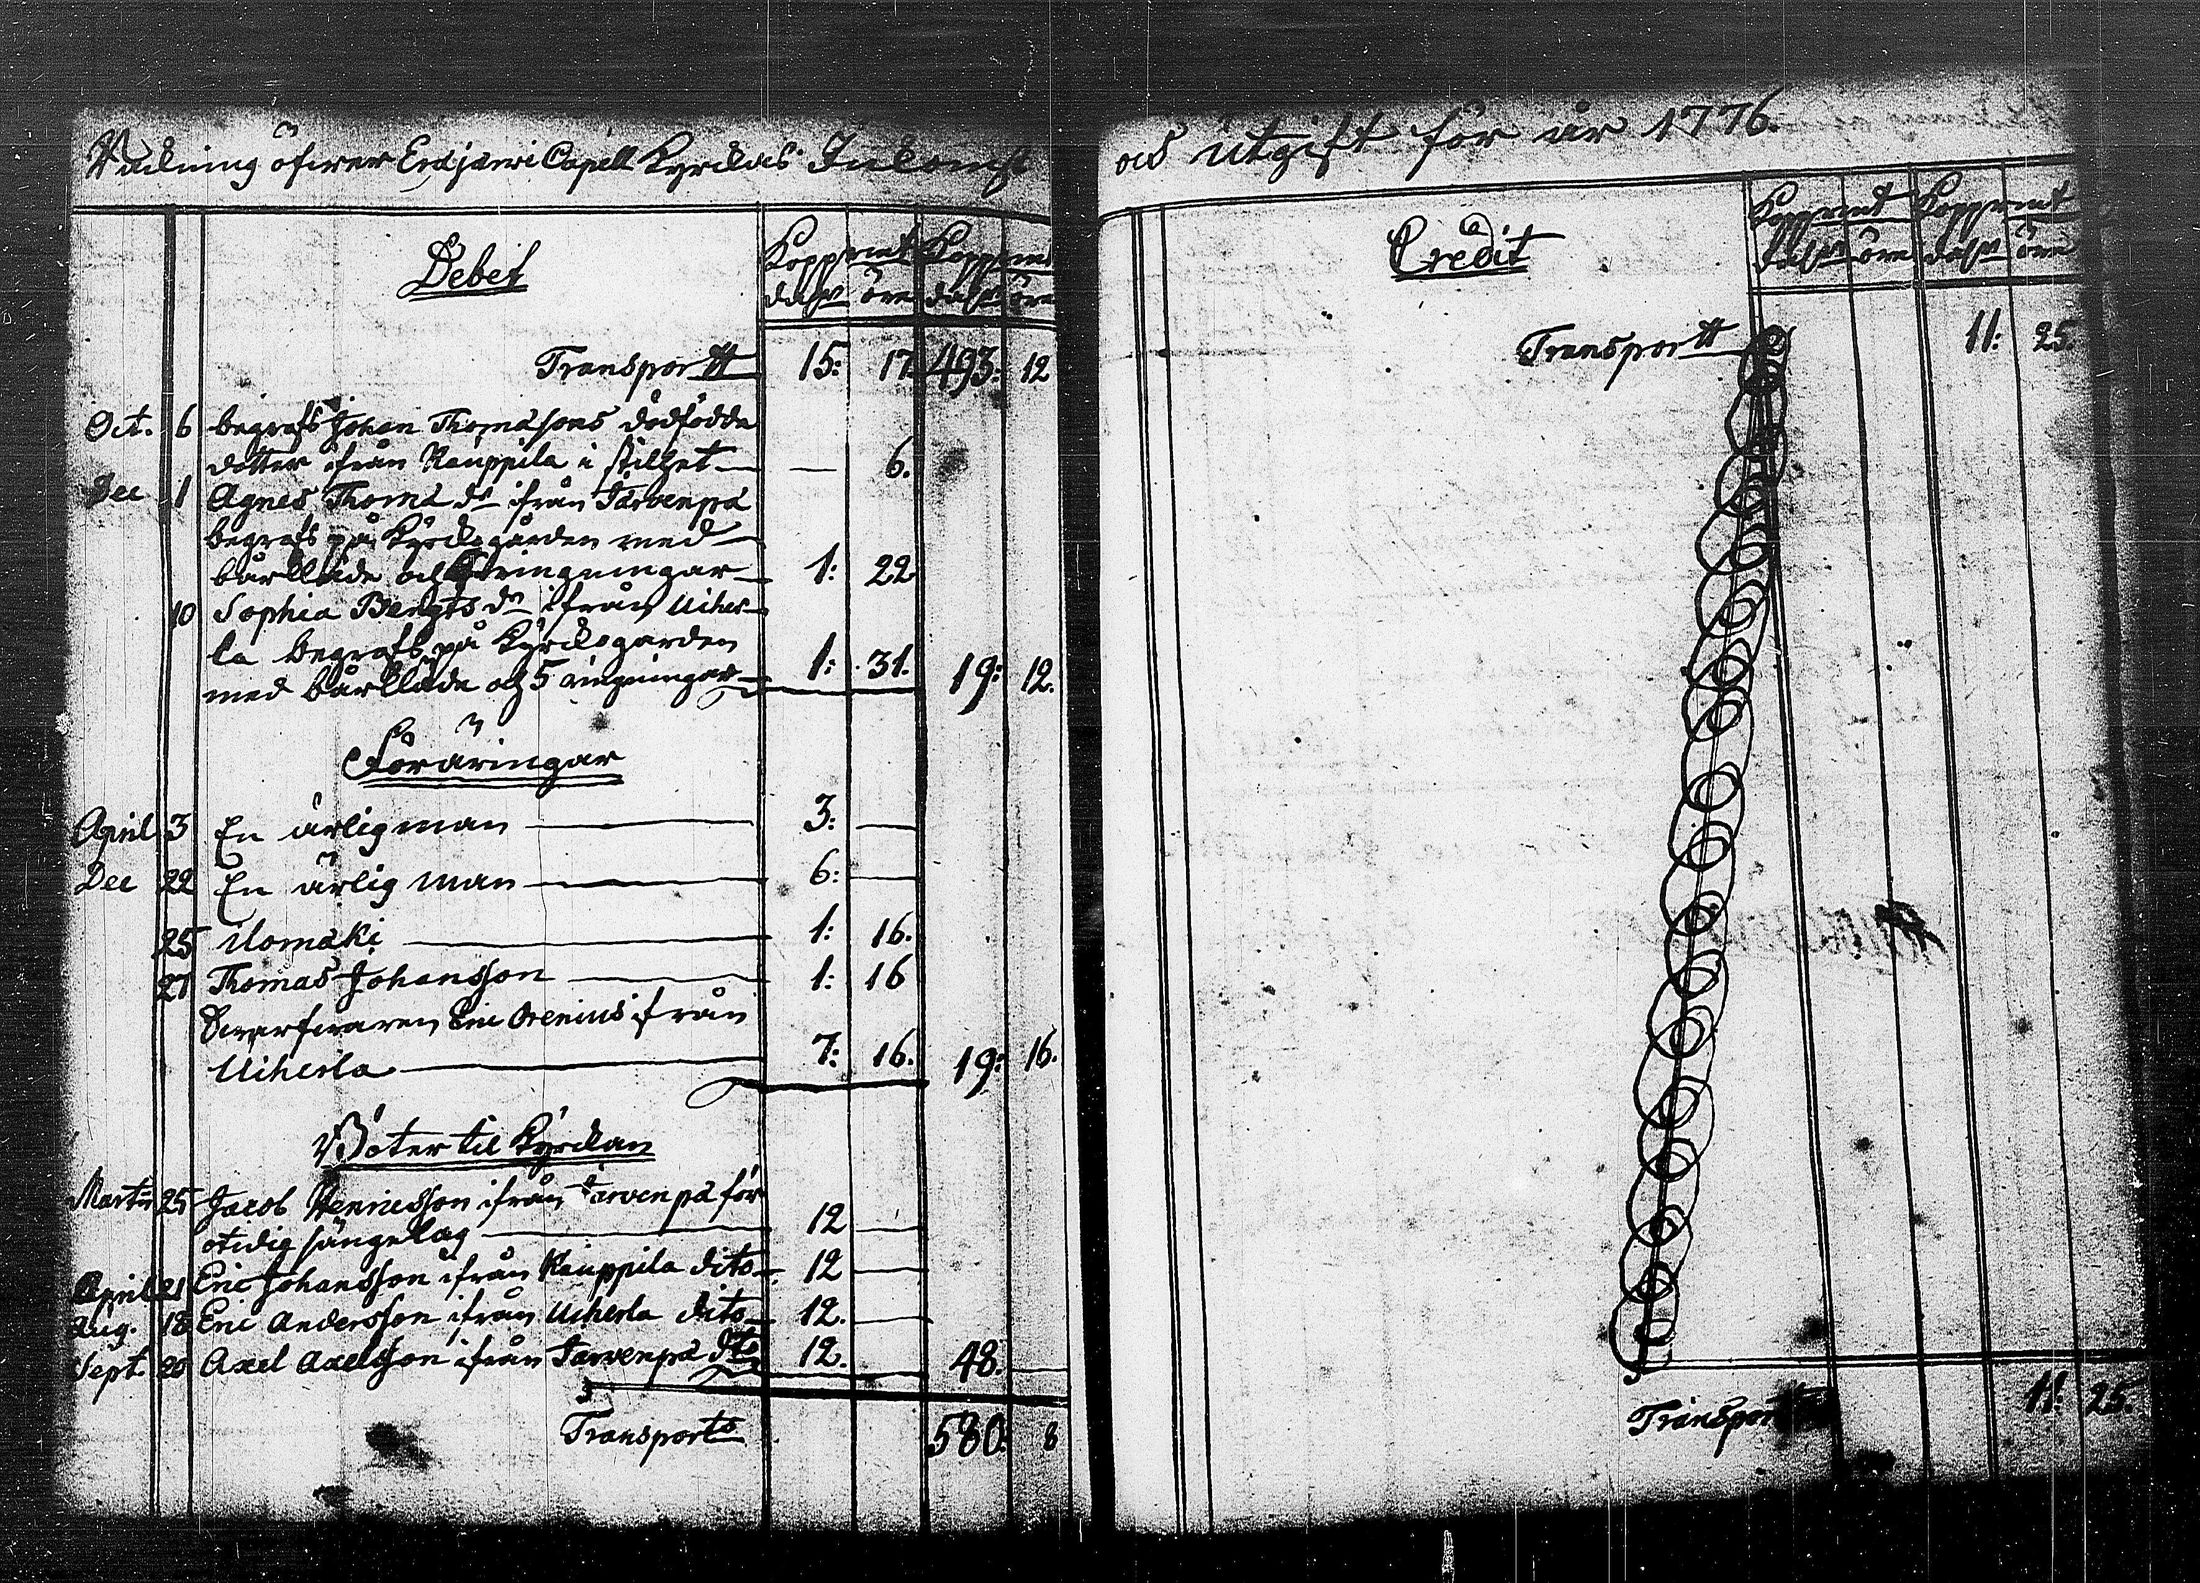 Räkning öfwer Erdjärwi Capell Kyrckas Inkomst
Debet
Koppmt Koppmt
dalr öre dalr öre
Transportt 15: 17. 493: 12
Oct. 6 begrofs Johan Thomassons dödfödda
dotter ifrån Kauppila i stillhet — — 6.
Dec 1 Agnes Thomæ dr ifrån Tarvenpä
begrofs på Kyrckogården med
bårkläde och ringningar 1: 22
10 Sophia Bengts dr ifrån Uiher-
la begrofs på Kyrckogården
med bårkläde och 5 ringningar 1: 31. 19: 12.
Föräringar
April 3 En ärlig man — 3: —
Dec 22 En ärlig man — 6: —
25 Uomäki — 1: 16.
27 Thomas Johansson — 1: 16
Eric Orenius ifrån
Uiherla — 7: 16. 19: 16.
Böter til Kyrckan
Marti 25 Jacob Henricsson ifrån Tarvenpä för
otidig sängelag — 12 —
April 21 Eric Johansson ifrån Kauppila dito 12 —
Aug. 18 Eric Andersson ifrån Uiherla dito 12. —
Sept. 20 Axel Axelsson ifrån Tarvenpä dto 12. — 48. —
Transporto 580: 8
och Utgift för år 1776.
Credit
Koppmt Koppmt
dalr öre dalr öre
Transportt 11: 25.
Transport 11: 25.